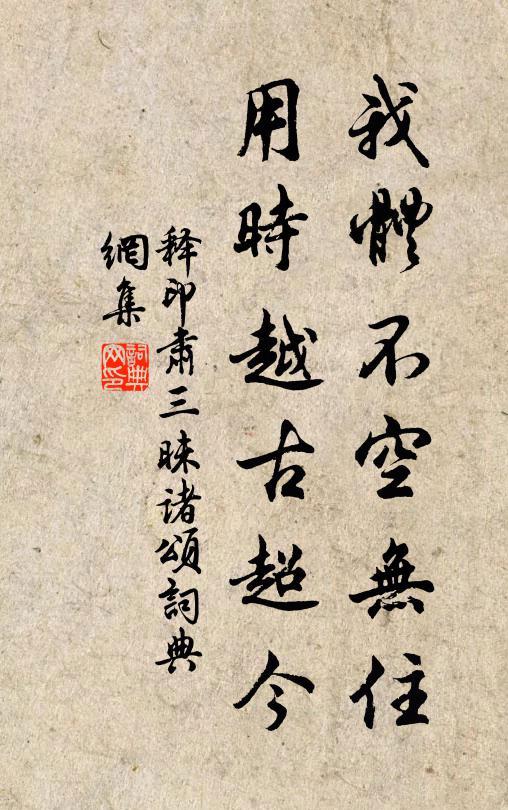 我體不空無住
用時越古超今
释印肃三昧诸颂詞典
網集
詞典
网印